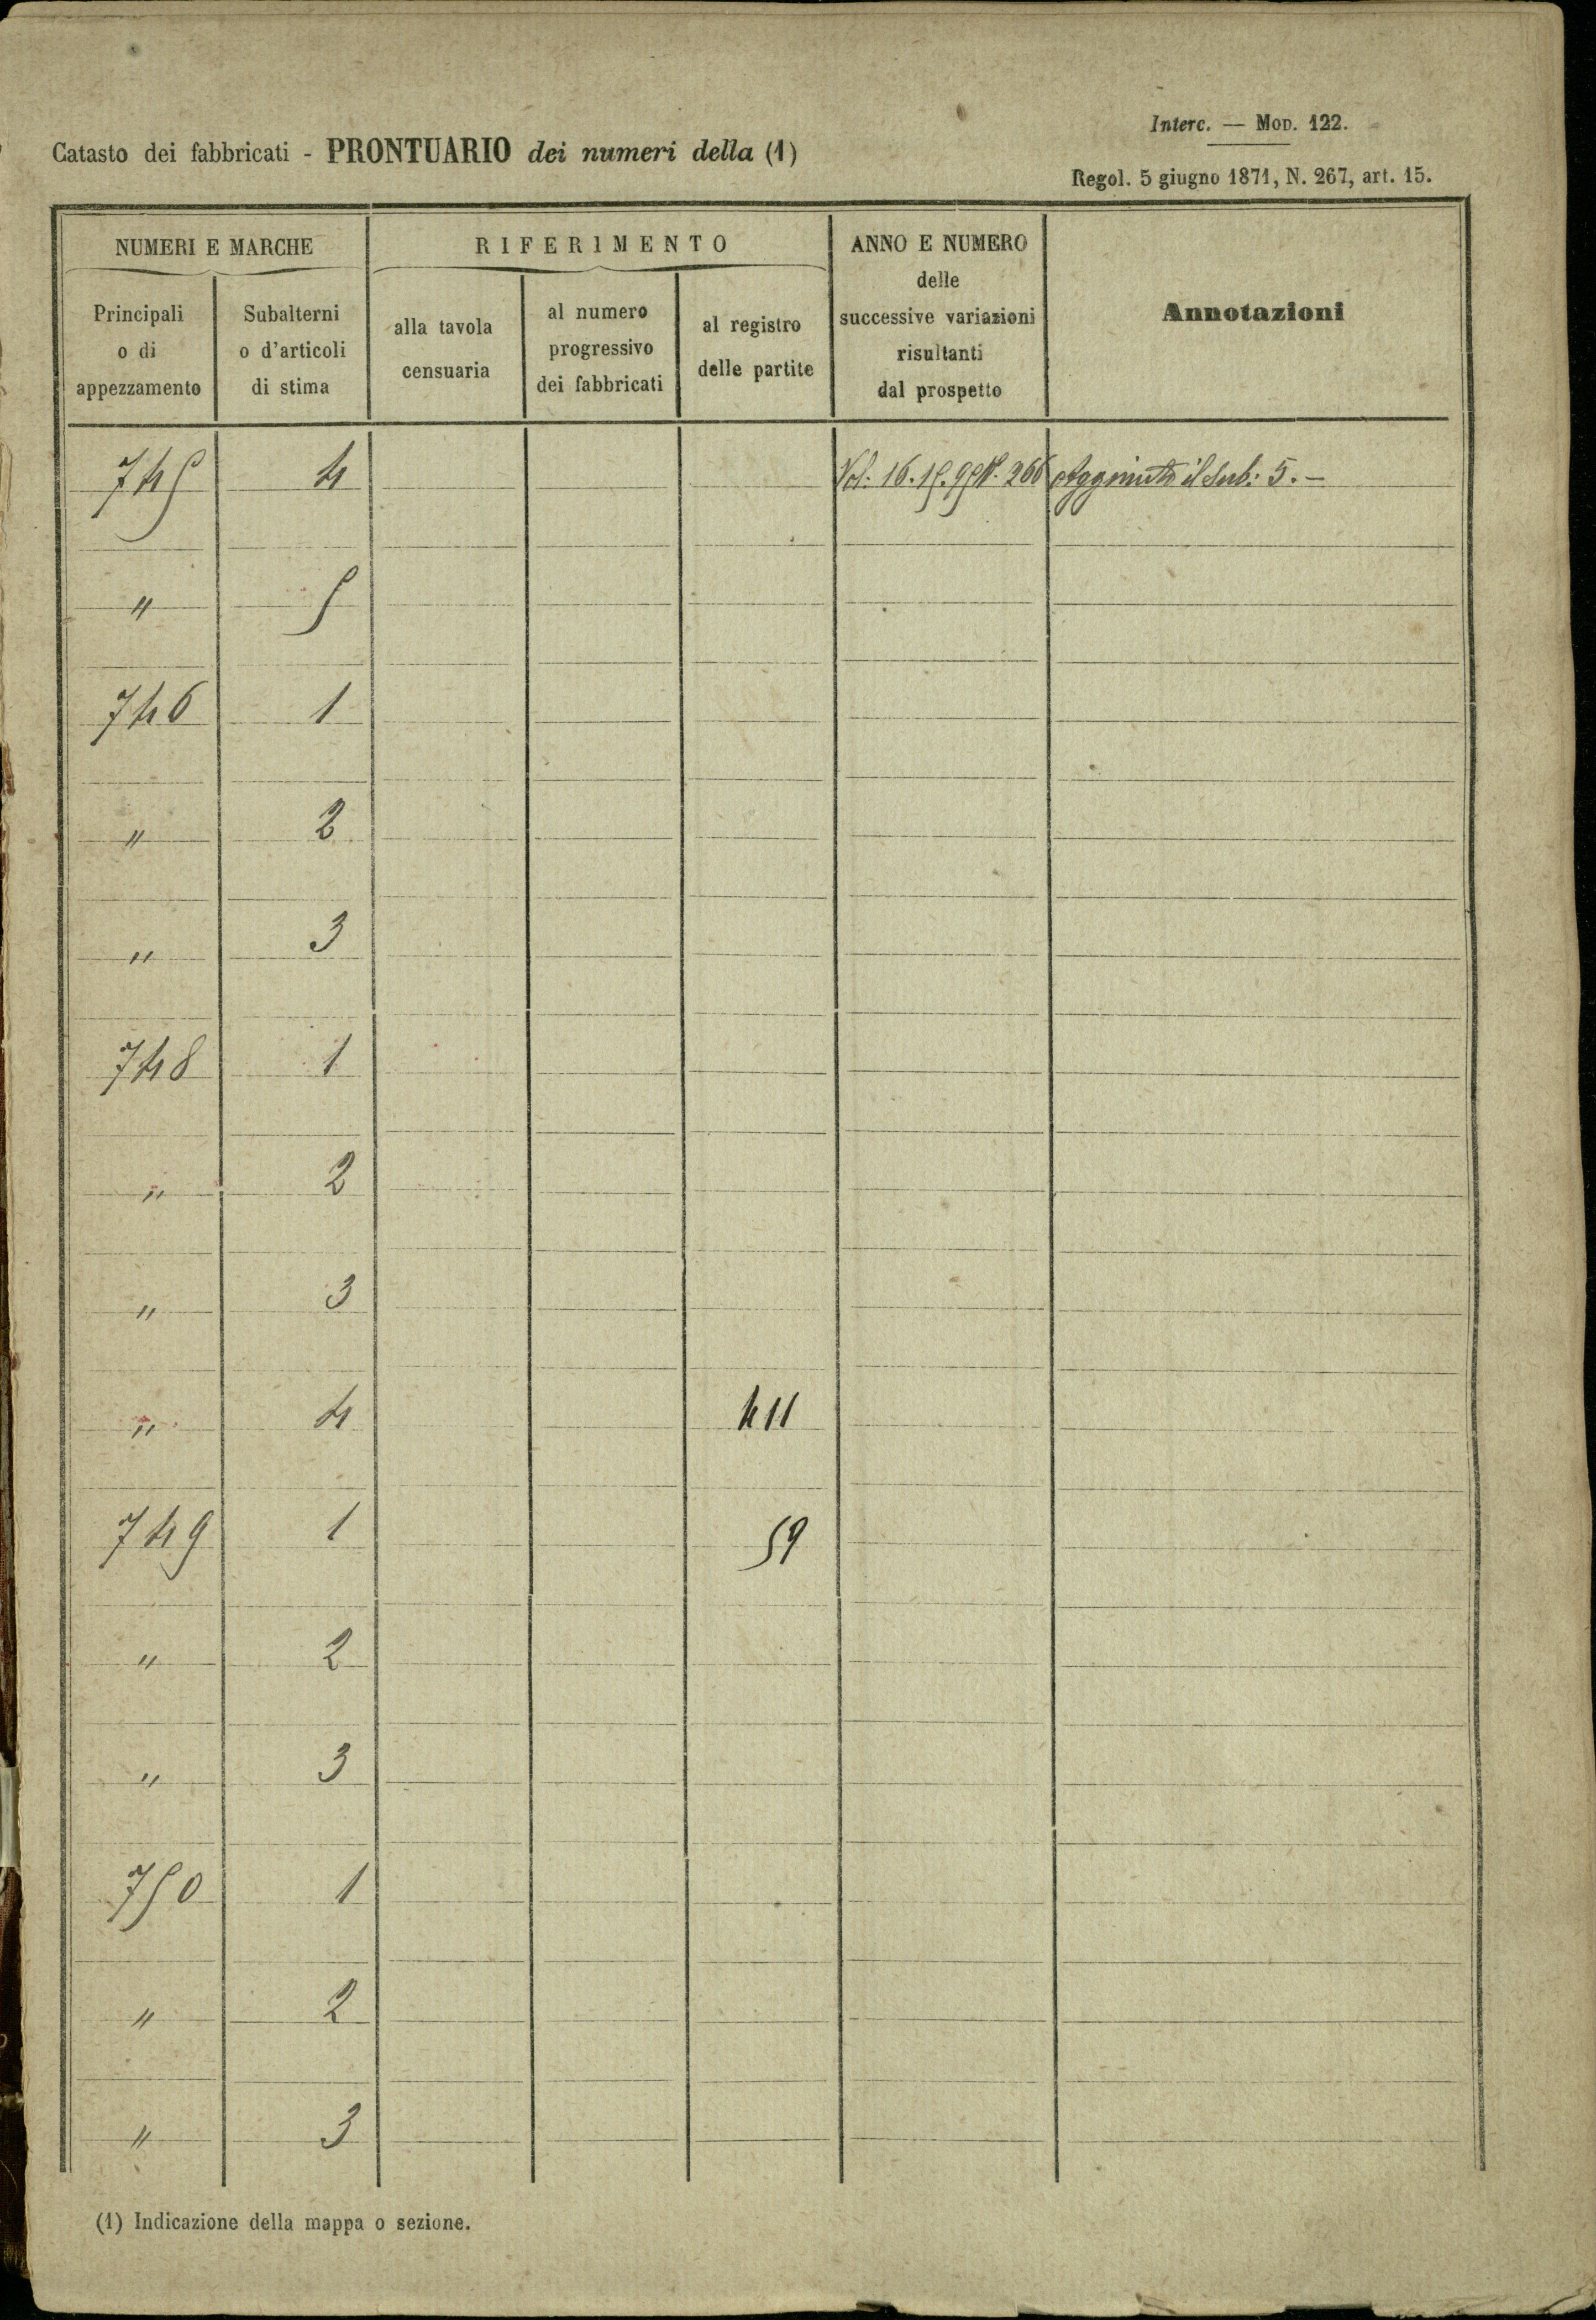 Interc. — Mod. 122.
Catasto dei fabbricati - PRONTUARIO dei numeri della (1)
Regol. 5 giugno 1871, N. 267, art. 15.
NUMERI E MARCHE
RIFERIMENTO
ANNO E NUMERO
delle
successive variazioni
risultanti
dal prospetto
Annotazioni
Principali
o di
appezzamento
Subalterni
o d'articoli
di stima
alla tavola
censuaria
al numero
progressivo
dei fabbricati
al registro
delle partite
745 4 Vol: 16. 15. 95 N. 266 Aggiunto il sub: 5. -
" 5
746 1
" 2
" 3
748 1
" 2
" 3
" 4 411
749 1 59
" 2
" 3
750 1
" 2
" 3
(1) Indicazione della mappa o sezione.